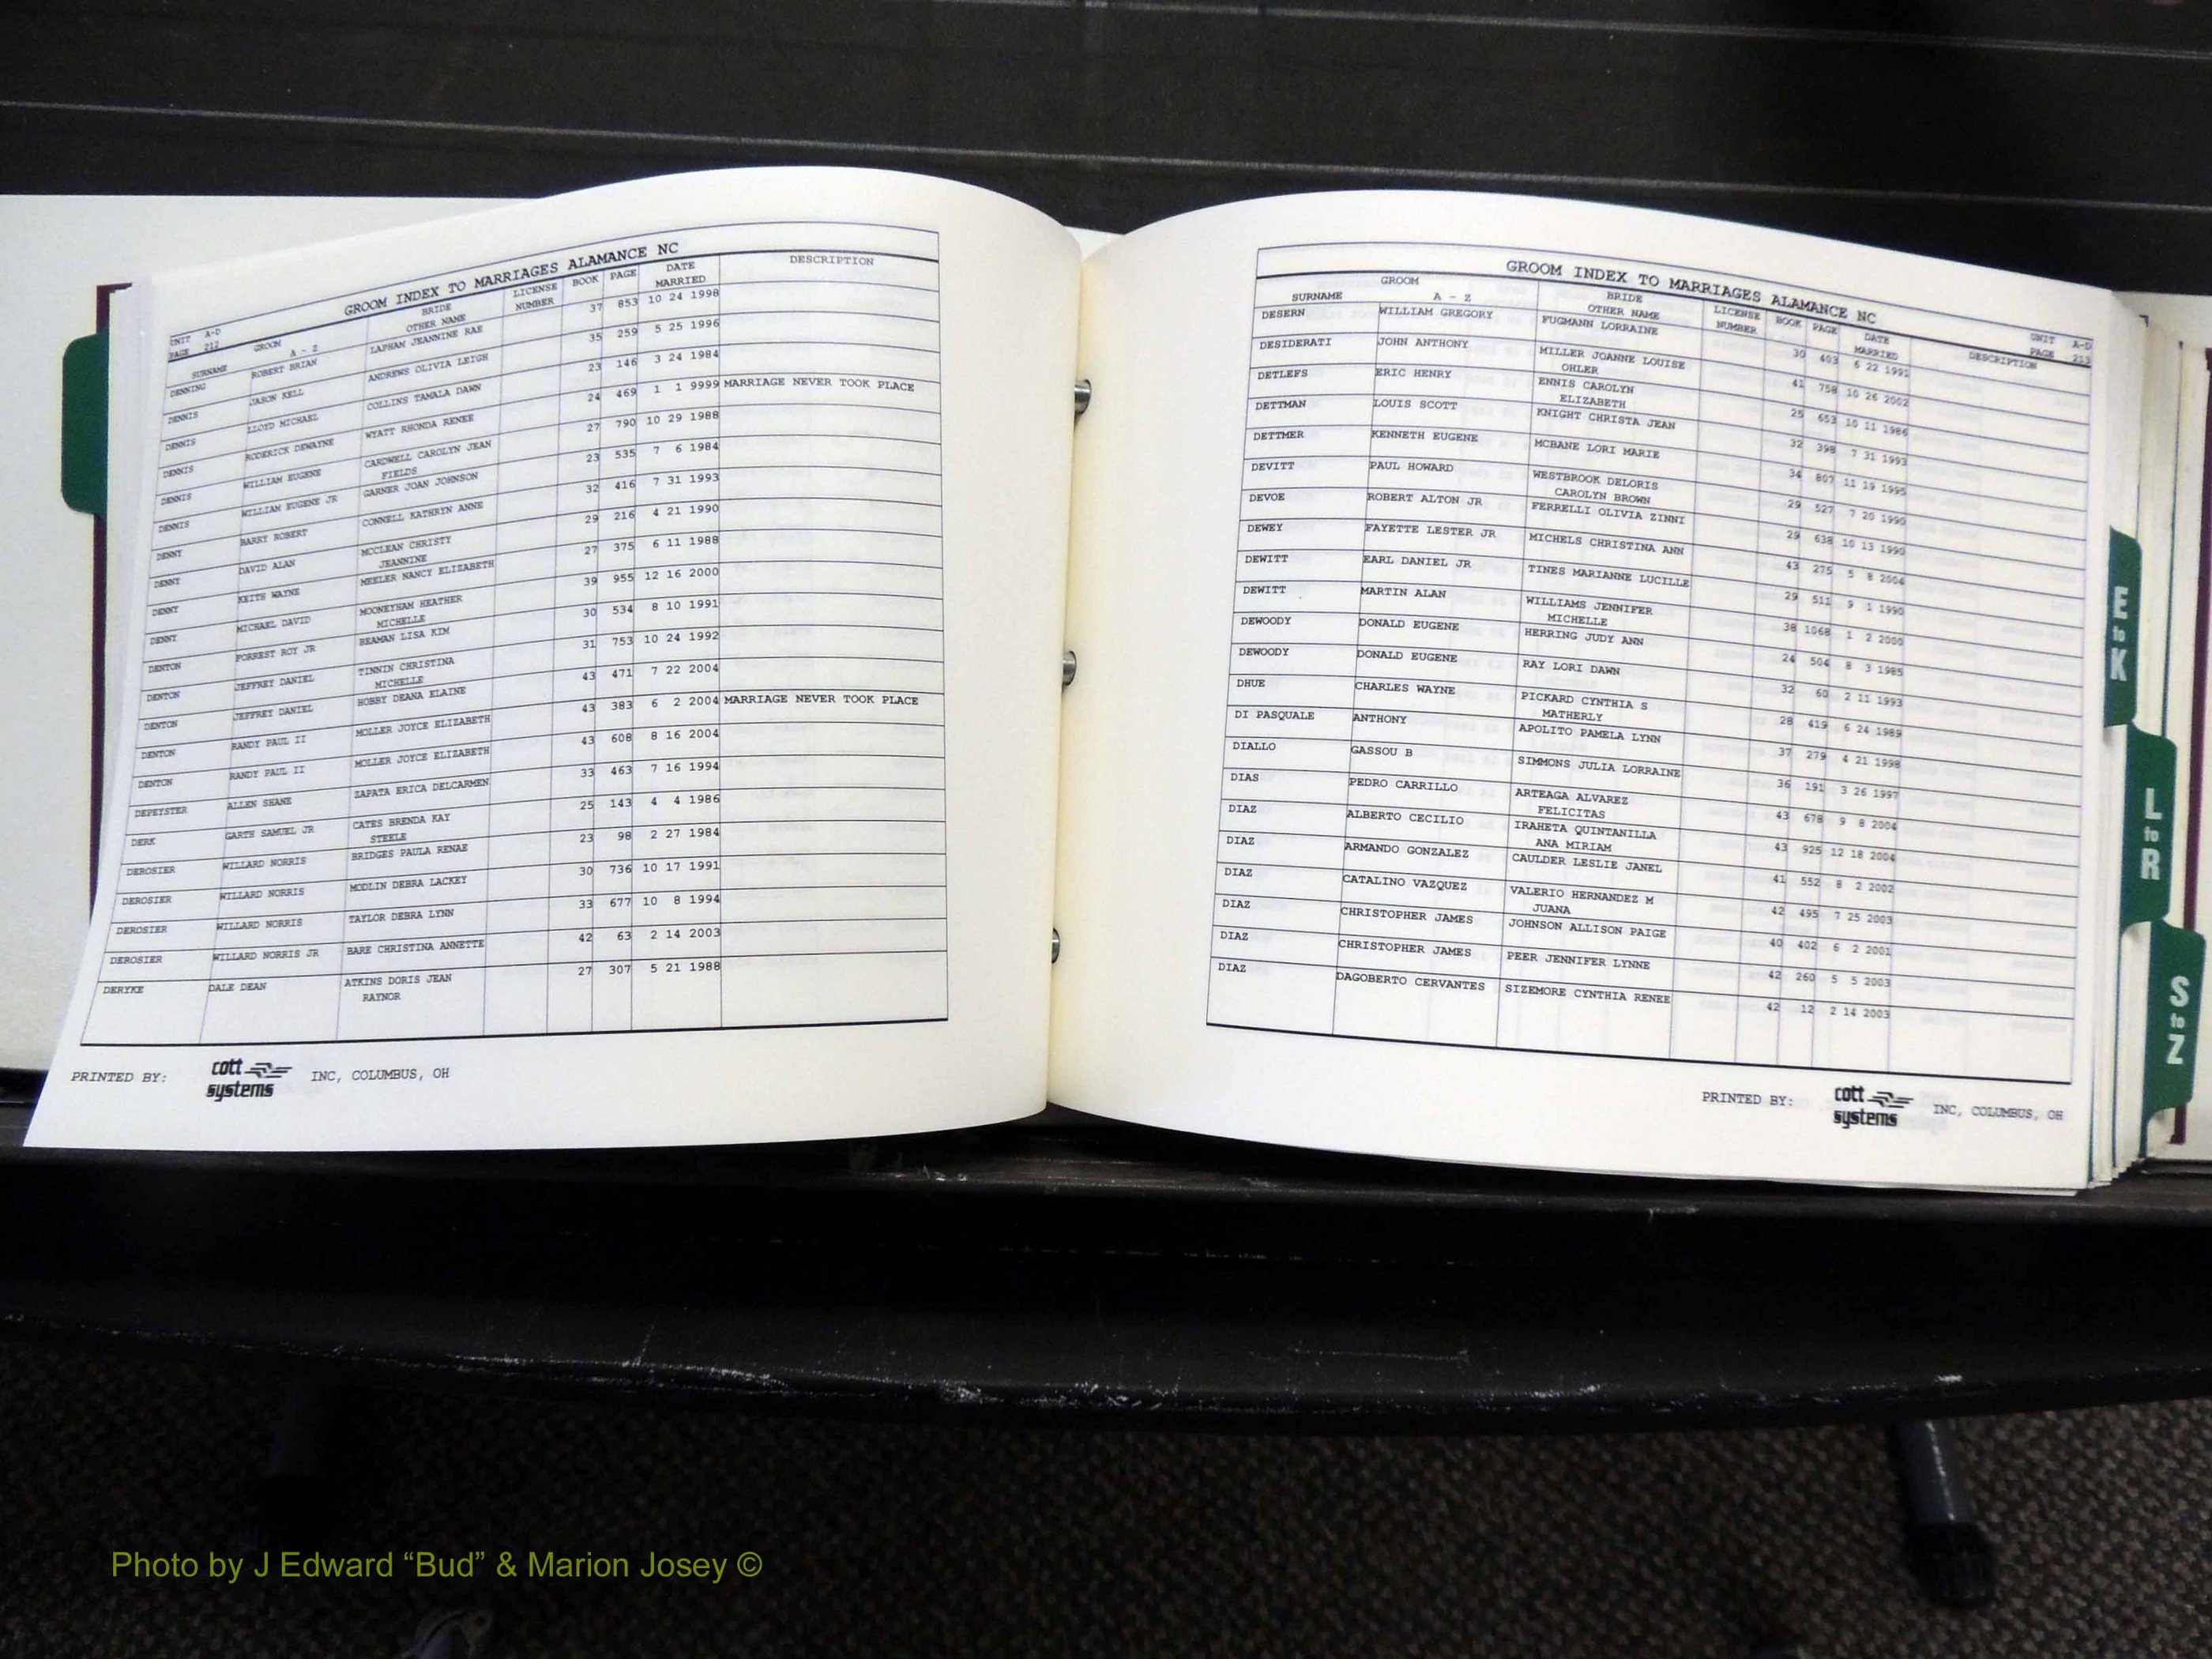 GROOM INDEX TO MARRIAGES ALAMANCE NC
UNIT A-D
PAGE 212
SURNAME GROOM A - Z BRIDE OTHER NAME LICENSE NUMBER BOOK PAGE DATE MARRIED DESCRIPTION
DENNING ROBERT BRIAN LAPHAM JEANNINE RAE 37 853 10 24 1998
DENNIS JASON KELL ANDREWS OLIVIA LEIGH 35 259 5 25 1996
DENNIS LLOYD MICHAEL COLLINS TAMALA DAWN 23 146 3 24 1984
DENNIS RODERICK DEWAYNE WYATT RHONDA RENEE 24 469 1 1 9999 MARRIAGE NEVER TOOK PLACE
DENNIS WILLIAM EUGENE CARDWELL CAROLYN JEAN 27 790 10 29 1988
FIELDS
DENNIS WILLIAM EUGENE JR GARNER JOAN JOHNSON 23 535 7 6 1984
DENNY BARRY ROBERT CONNELL KATHRYN ANNE 32 416 7 31 1993
DENNY DAVID ALAN MCCLEAN CHRISTY 29 216 4 21 1990
JEANNINE
DENNY KEITH WAYNE MEELER NANCY ELIZABETH 27 375 6 11 1988
DENNY MICHAEL DAVID MOONEYHAM HEATHER 39 955 12 16 2000
MICHELLE
DENTON FORREST ROY JR BEAMAN LISA KIM 30 534 8 10 1991
DENTON JEFFREY DANIEL TINNIN CHRISTINA 31 753 10 24 1992
MICHELLE
DENTON JEFFREY DANIEL HOBBY DEANA ELAINE 43 471 7 22 2004
DENTON RANDY PAUL II MOLLER JOYCE ELIZABETH 43 383 6 2 2004 MARRIAGE NEVER TOOK PLACE
DENTON RANDY PAUL II MOLLER JOYCE ELIZABETH 43 608 8 16 2004
DEPEYSTER ALLEN SHANE ZAPATA ERICA DELCARMEN 33 463 7 16 1994
DERK GARTH SAMUEL JR CATES BRENDA KAY 25 143 4 4 1986
STEELE
DEROSIER WILLARD NORRIS BRIDGES PAULA RENAE 23 98 2 27 1984
DEROSIER WILLARD NORRIS MODLIN DEBRA LACKEY 30 736 10 17 1991
DEROSIER WILLARD NORRIS TAYLOR DEBRA LYNN 33 677 10 8 1994
DEROSIER WILLARD NORRIS JR BARE CHRISTINA ANNETTE 42 63 2 14 2003
DERYKE DALE DEAN ATKINS DORIS JEAN 27 307 5 21 1988
RAYNOR
PRINTED BY: cott systems INC, COLUMBUS, OH
GROOM INDEX TO MARRIAGES ALAMANCE NC
UNIT A-D
PAGE 213
SURNAME GROOM A - Z BRIDE OTHER NAME LICENSE NUMBER BOOK PAGE DATE MARRIED DESCRIPTION
DESERN WILLIAM GREGORY FUGMANN LORRAINE 30 403 6 22 1991
DESIDERATI JOHN ANTHONY MILLER JOANNE LOUISE 41 758 10 26 2002
OHLER
DETLEFS ERIC HENRY ENNIS CAROLYN 25 653 10 11 1986
ELIZABETH
DETTMAN LOUIS SCOTT KNIGHT CHRISTA JEAN 32 398 7 31 1993
DETTMER KENNETH EUGENE MCBANE LORI MARIE 34 807 11 19 1995
DEVITT PAUL HOWARD WESTBROOK DELORIS 29 527 7 20 1990
CAROLYN BROWN
DEVOE ROBERT ALTON JR FERRELLI OLIVIA ZINNI 29 638 10 13 1990
DEWEY FAYETTE LESTER JR MICHELS CHRISTINA ANN 43 275 5 8 2004
DEWITT EARL DANIEL JR TINES MARIANNE LUCILLE 29 511 9 1 1990
DEWITT MARTIN ALAN WILLIAMS JENNIFER 38 1068 1 2 2000
MICHELLE
DEWOODY DONALD EUGENE HERRING JUDY ANN 24 504 8 3 1985
DEWOODY DONALD EUGENE RAY LORI DAWN 32 60 2 11 1993
DHUE CHARLES WAYNE PICKARD CYNTHIA S 28 419 6 24 1989
MATHERLY
DI PASQUALE ANTHONY APOLITO PAMELA LYNN 37 279 4 21 1998
DIALLO GASSOU B SIMMONS JULIA LORRAINE 36 191 3 26 1997
DIAS PEDRO CARRILLO ARTEAGA ALVAREZ 43 678 9 8 2004
FELICITAS
DIAZ ALBERTO CECILIO IRAHETA QUINTANILLA 43 925 12 18 2004
ANA MIRIAM
DIAZ ARMANDO GONZALEZ CAULDER LESLIE JANEL 41 552 8 2 2002
DIAZ CATALINO VAZQUEZ VALERIO HERNANDEZ M 42 495 7 25 2003
JUANA
DIAZ CHRISTOPHER JAMES JOHNSON ALLISON PAIGE 40 402 6 2 2001
DIAZ CHRISTOPHER JAMES PEER JENNIFER LYNNE 42 260 5 5 2003
DIAZ DAGOBERTO CERVANTES SIZEMORE CYNTHIA RENEE 42 12 2 14 2003
PRINTED BY: cott systems INC, COLUMBUS, OH
E to K
L to R
S to Z
Photo by J Edward “Bud” & Marion Josey ©